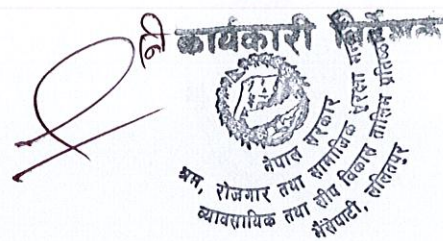 कार्यकारी निर्देशक
नेपाल सरकार
श्रम, रोजगार तथा सामाजिक सुरक्षा
व्यावसायिक तथा सीप विकास तालिम प्रतिष्ठान
भैंसेपाटी, ललितपुर